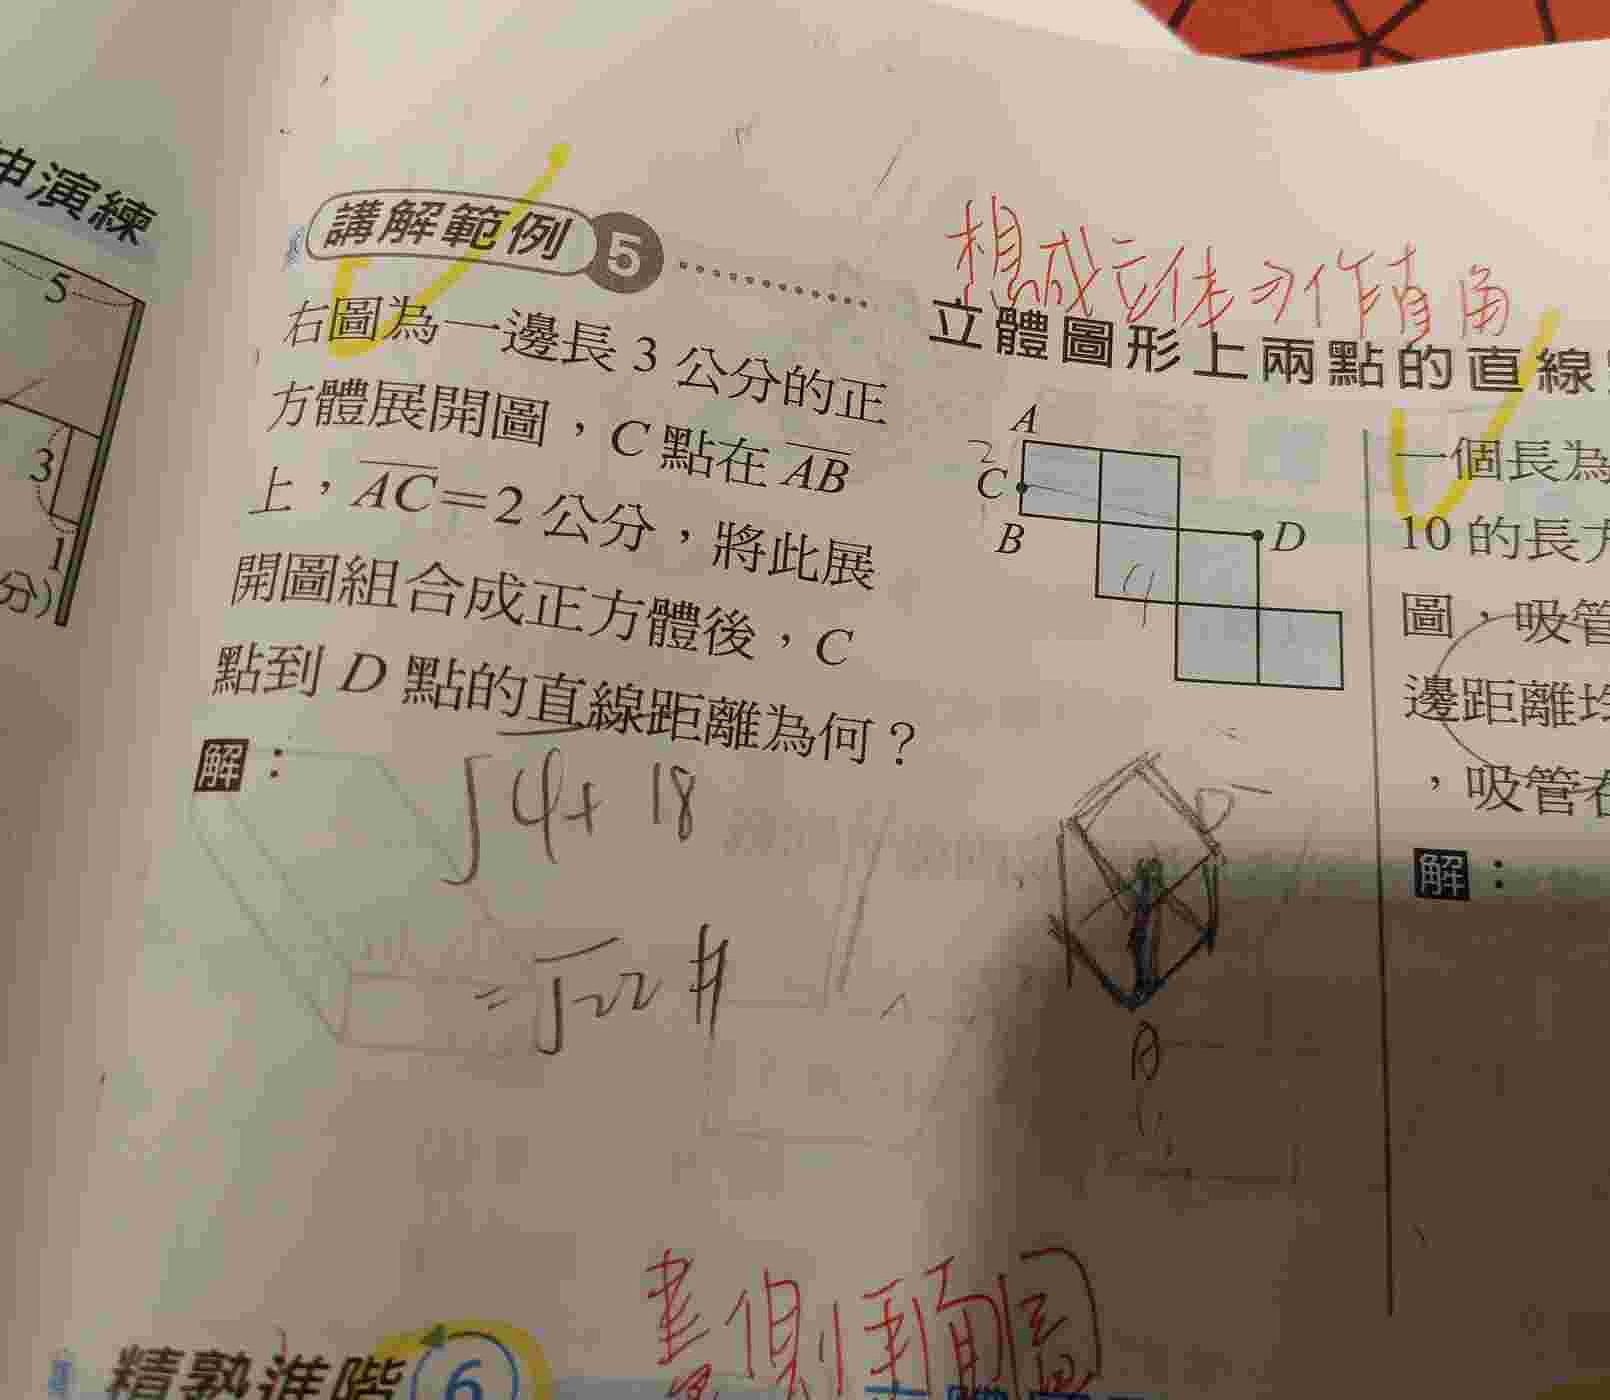 申演練
5
3
1
分)
講解範例 5
右圖為一邊長 3 公分的正
方體展開圖，C 點在 AB
上，AC=2 公分，將此展
開圖組合成正方體後，C
點到 D 點的直線距離為何？
解：
√4+18
=√22 #
想成立體⇒作直角
立體圖形上兩點的直線
A
2
C
B
D
4
D
A
一個長為
10 的長方
圖，吸管
邊距離均
，吸管在
解：
畫側面圖
精熟進階 6